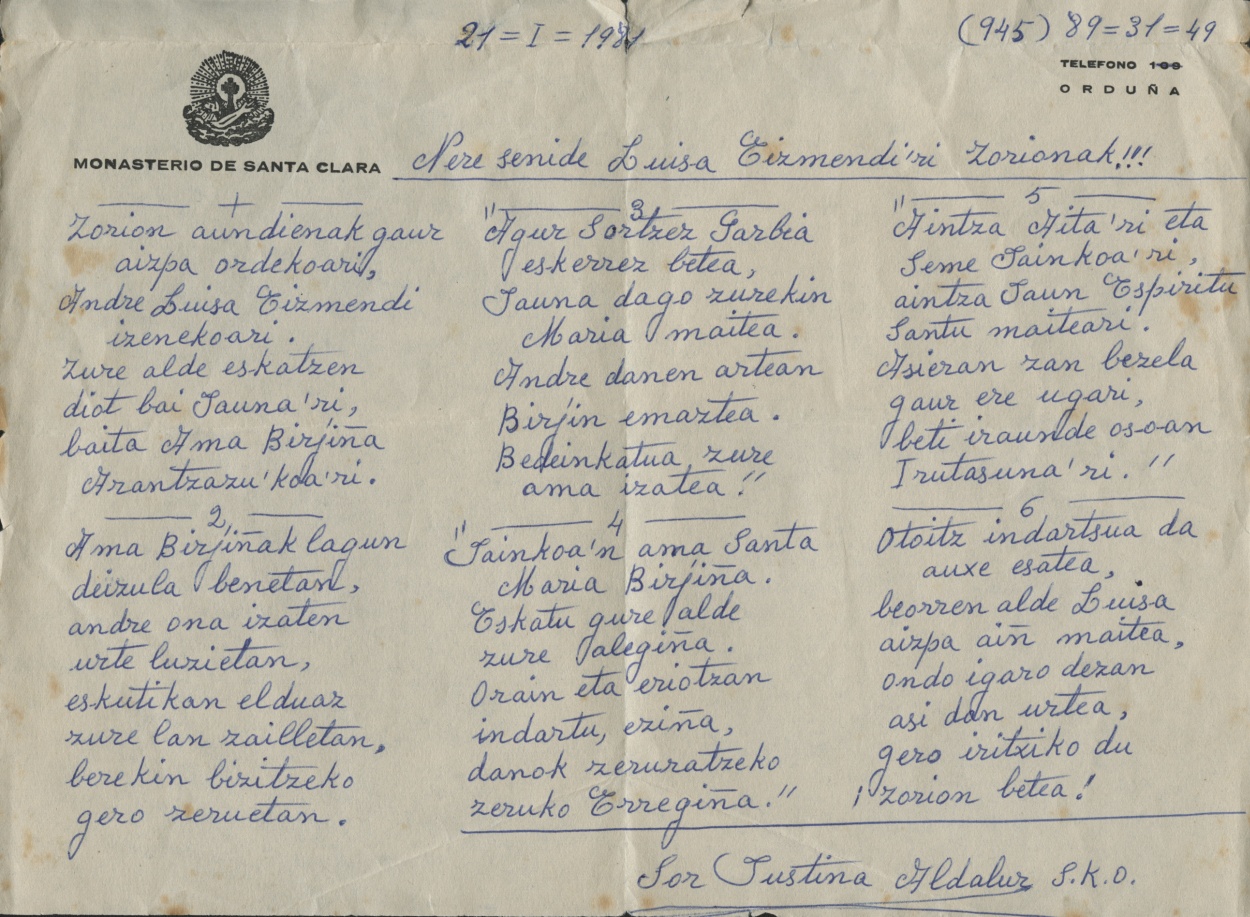 21 = I = 1981
(945) 89=31=49
TELEFONO 100
ORDUÑA
MONASTERIO DE SANTA CLARA
Nere senide Luisa Eizmendi'ri Zorionak!!!
+
Zorion aundienak gaur
aizpa ordekoari,
Andre Luisa Eizmendi
izenekoari.
Zure alde eskatzen
diot bai Jauna'ri,
baita Ama Birjiña
Arantzazu'koa'ri.
2
Ama Birjiñak lagun
deizula benetan,
andre ona izaten
urte luzietan,
eskutikan elduaz
zure lan zailletan,
berekin bizitzeko
gero zeruetan.
3
"Agur Sortzez Garbia
eskerrez betea,
Jauna dago zurekin
Maria maitea.
Andre danen artean
Birjin emaztea.
Bedeinkatua zure
ama izatea!"
4
"Jainkoa'n ama Santa
Maria Birjiña.
Eskatu gure alde
zure alegiña.
Orain eta eriotzan
indartu, eziña,
danok zeruratzeko
zeruko Erregiña."
5
"Aintza Aita'ri eta
Seme Jainkoa'ri,
aintza Jaun Espiritu
Santu maiteari.
Asieran zan bezela
gaur ere ugari,
beti iraunde oso-an
Irutasuna'ri."
6
Otoitz indartsua da
auxe esatea,
beorren alde Luisa
aizpa aiñ maitea,
ondo igaro dezan
asi dan urtea,
gero iritxiko du
¡zorion betea!
Sor Justina Aldalur S.K.O.